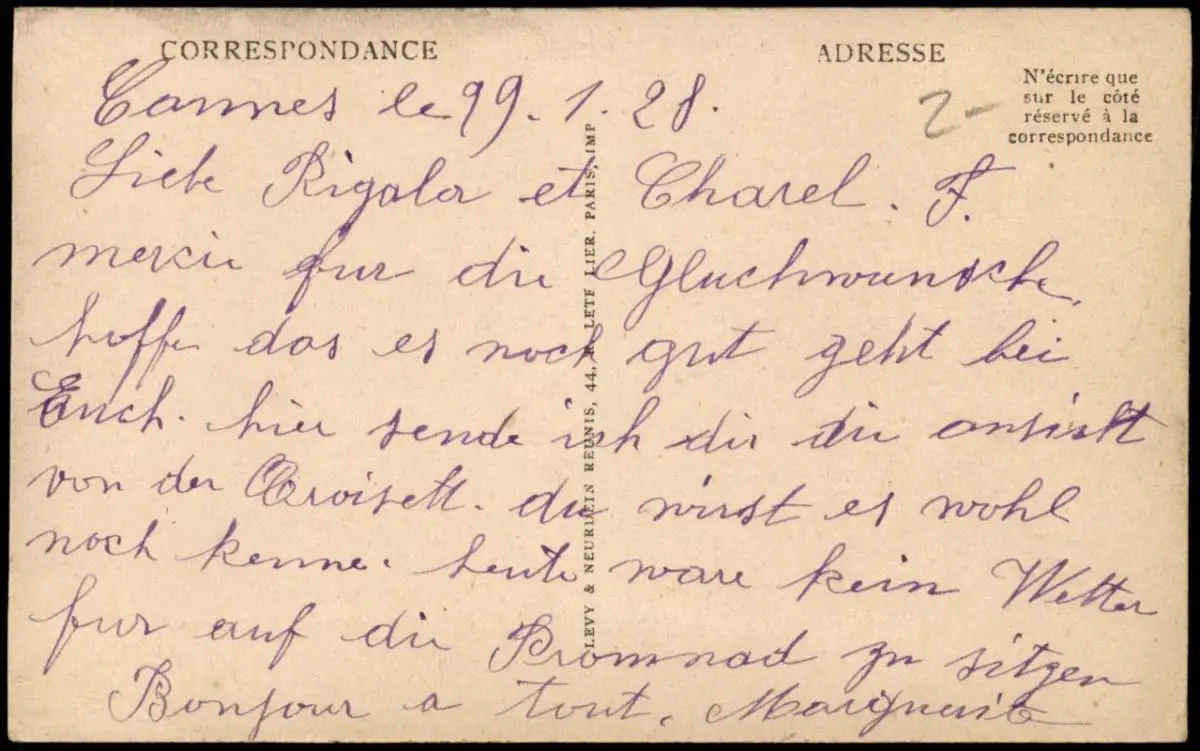 CORRESPONDANCE
ADRESSE
N'écrire que
sur le côté
réservé à la
correspondance
2-
Cannes le 99.1.28.
Liebe Rigala et Charel. F.
mercie fur die Gluchwunsche,
hoffe das es noch gut geht bei
Euch. hier sende ich dir die ansicht
von der Croisett. du wirst es wohl
noch kenne. heute ware kein Wetter
fur auf die Promnad zu sitzen
Bonjour a tout, Marguerite
LEVY & NEURDEIN REUNIS, 44, R. LETELLIER, PARIS, IMP